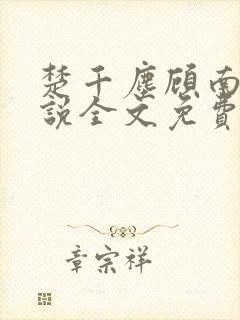 楚千塵顧南
說全文免費
章宗祥